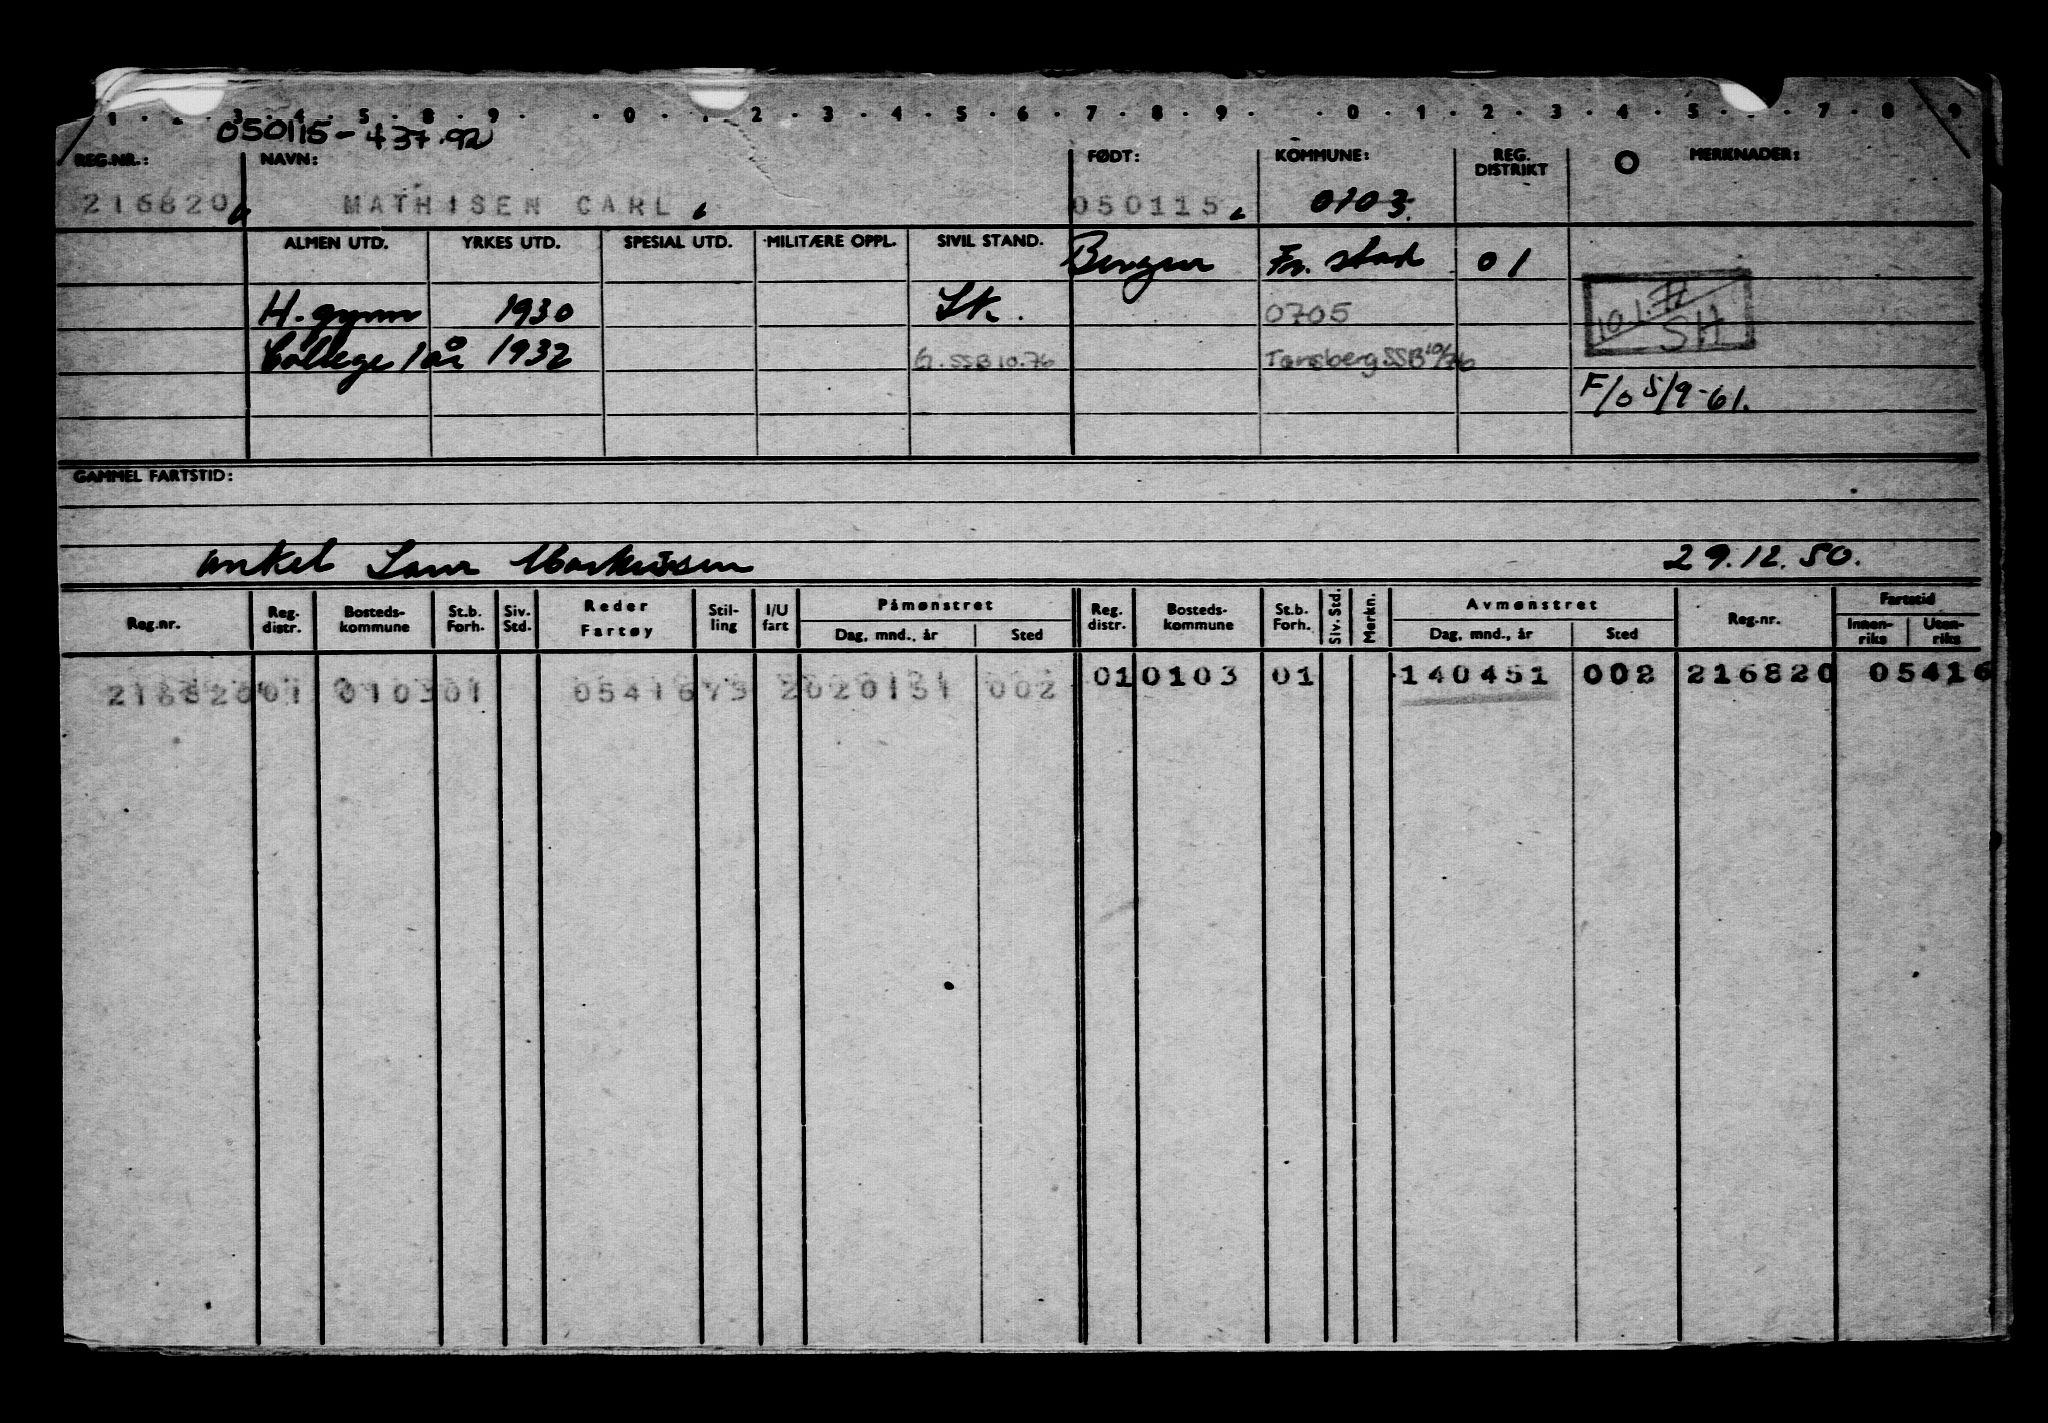 1 · 2 · 3 · 4 · 5 · 8 · 9 · · 0 · 1 · 2 · 3 · 4 · 5 · 6 · 7 · 8 · 9 · · 0 · 1 · 2 · 3 · 4 · 5 · · 7 · 8 · 9
050115-437.92
REG.NR.: NAVN: FØDT: KOMMUNE: REG. DISTRIKT MERKNADER:
216820 MATHISEN CARL 050115 0103.
ALMEN UTD. YRKES UTD. SPESIAL UTD. MILITÆRE OPPL. SIVIL STAND. Bergen Fr. stad 01
H. gymn 1930 0705
SH
College 1 år 1932 G. SSB 10.76 Tønsberg SSB 10/76
F/o 5/9-61.
GAMMEL FARTSTID:
enkel 29.12.50.
Reg.nr. Reg. distr. Bosteds- kommune St.b. Forh. Siv. Std. Reder Fartøy Stil- ling I/U fart Påmønstret Dag, mnd., år Sted Reg. distr. Bosteds- kommune St.b. Forh. Siv. Std. Merkn. Avmønstret Dag, mnd., år Sted Reg.nr. Fartstid Innen- riks Uten- riks
216820 01 0103 01 05416 73 2 020151 002 01 0103 01 140451 002 216820 05416